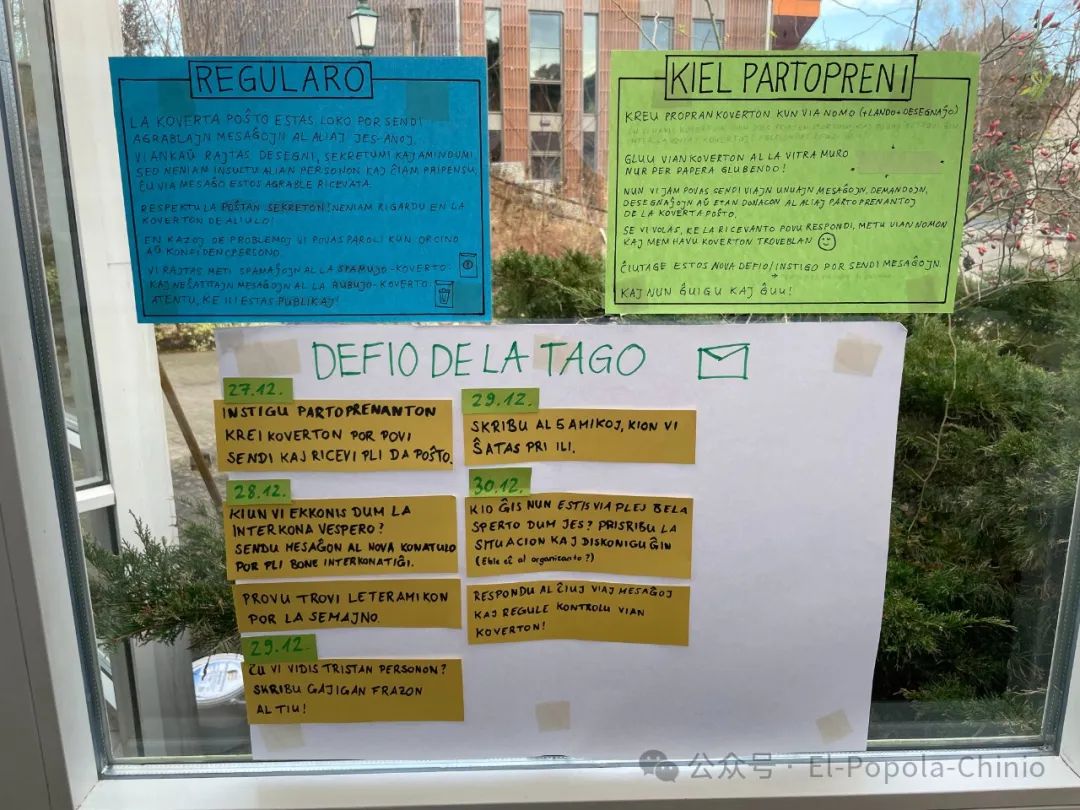 REGULARO
LA KOVERTA POŜTO ESTAS LOKO POR SENDI
AGRABLAJN MESAĜOJN AL ALIAJ JES-ANOJ.
VI ANKAŬ RAJTAS DESEGNI, SEKRETUMI KAJ AMINDUMI,
SED NENIAM INSULTU ALIAN PERSONON KAJ ĈIAM PRIPENSU,
ĈU VIA MESAĜO ESTOS AGRABLE RICEVATA.
RESPEKTU LA POŜTAN SEKRETON! NENIAM RIGARDU EN LA
KOVERTON DE ALIULO!
EN KAZOJ DE PROBLEMOJ VI POVAS PAROLI KUN
AŬ KONFIDENCPERSONO.
VI RAJTAS METI SPAMAĴOJN AL LA SPAMUJO-KOVERTO
KAJ NEŜATATAJN MESAĜOJN AL LA RUBUJO-KOVERTO
ATENTU, KE ILI ESTAS PUBLIKAJ!
KIEL PARTOPRENI
KREU PROPRAN KOVERTON KUN VIA NOMO (+LANDO+DESEGNAĴO)
GLUU VIAN KOVERTON AL LA VITRA MURO
NUR PER PAPERA GLUBENDO!
NUN VI JAM POVAS SENDI VIAJN UNUAJN MESAĜOJN, DEMANDOJN,
DESEGNAĴOJN AŬ ETAN DONACON AL ALIAJ PARTOPRENANTOJ
DE LA KOVERTA POŜTO.
SE VI VOLAS, KE LA RICEVANTO POVU RESPONDI, METU VIAN NOMON
KAJ MEM HAVU KOVERTON TROVEBLAN
ĈIUTAGE ESTOS NOVA DEFIO/INSTIGO POR SENDI MESAĜOJN.
KAJ NUN ĜUIGU KAJ ĜUU!
DEFIO DE LA TAGO
27.12.
INSTIGU PARTOPRENANTON
KREI KOVERTON POR POVI
SENDI KAJ RICEVI PLI DA POŜTO.
28.12.
KIUN VI EKKONIS DUM LA
INTERKONA VESPERO?
SENDU MESAĜON AL NOVA KONATULO
POR PLI BONE INTERKONATIĜI.
PROVU TROVI LETERAMIKON
POR LA SEMAJNO.
29.12.
ĈU VI VIDIS TRISTAN PERSONON?
SKRIBU GAJIGAN FRAZON
AL TIU!
29.12.
SKRIBU AL 5 AMIKOJ, KION VI
ŜATAS PRI ILI.
30.12.
KIO ĜIS NUN ESTIS VIA PLEJ BELA
SPERTO DUM JES? PRISRIBU LA
SITUACION KAJ DISKONIGU ĜIN
(Eble eĉ al organizanto?)
RESPONDU AL ĈIUJ VIAJ MESAĜOJ
KAJ REGULE KONTROLU VIAN
KOVERTON!
公众号 · El-Popola-Chinio